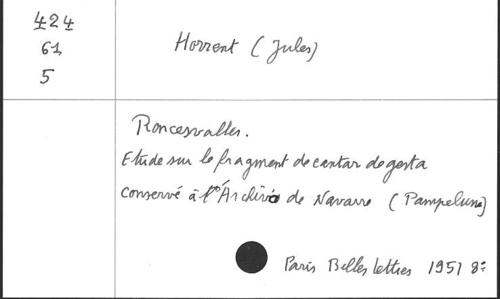 424
61
5
Horrent (Jules)
Roncesvalles.
Etude sur le fragment de cantar de gesta
conservé à l'Archivo de Navarre (Pampelune)
Paris Belles lettres 1951 8°